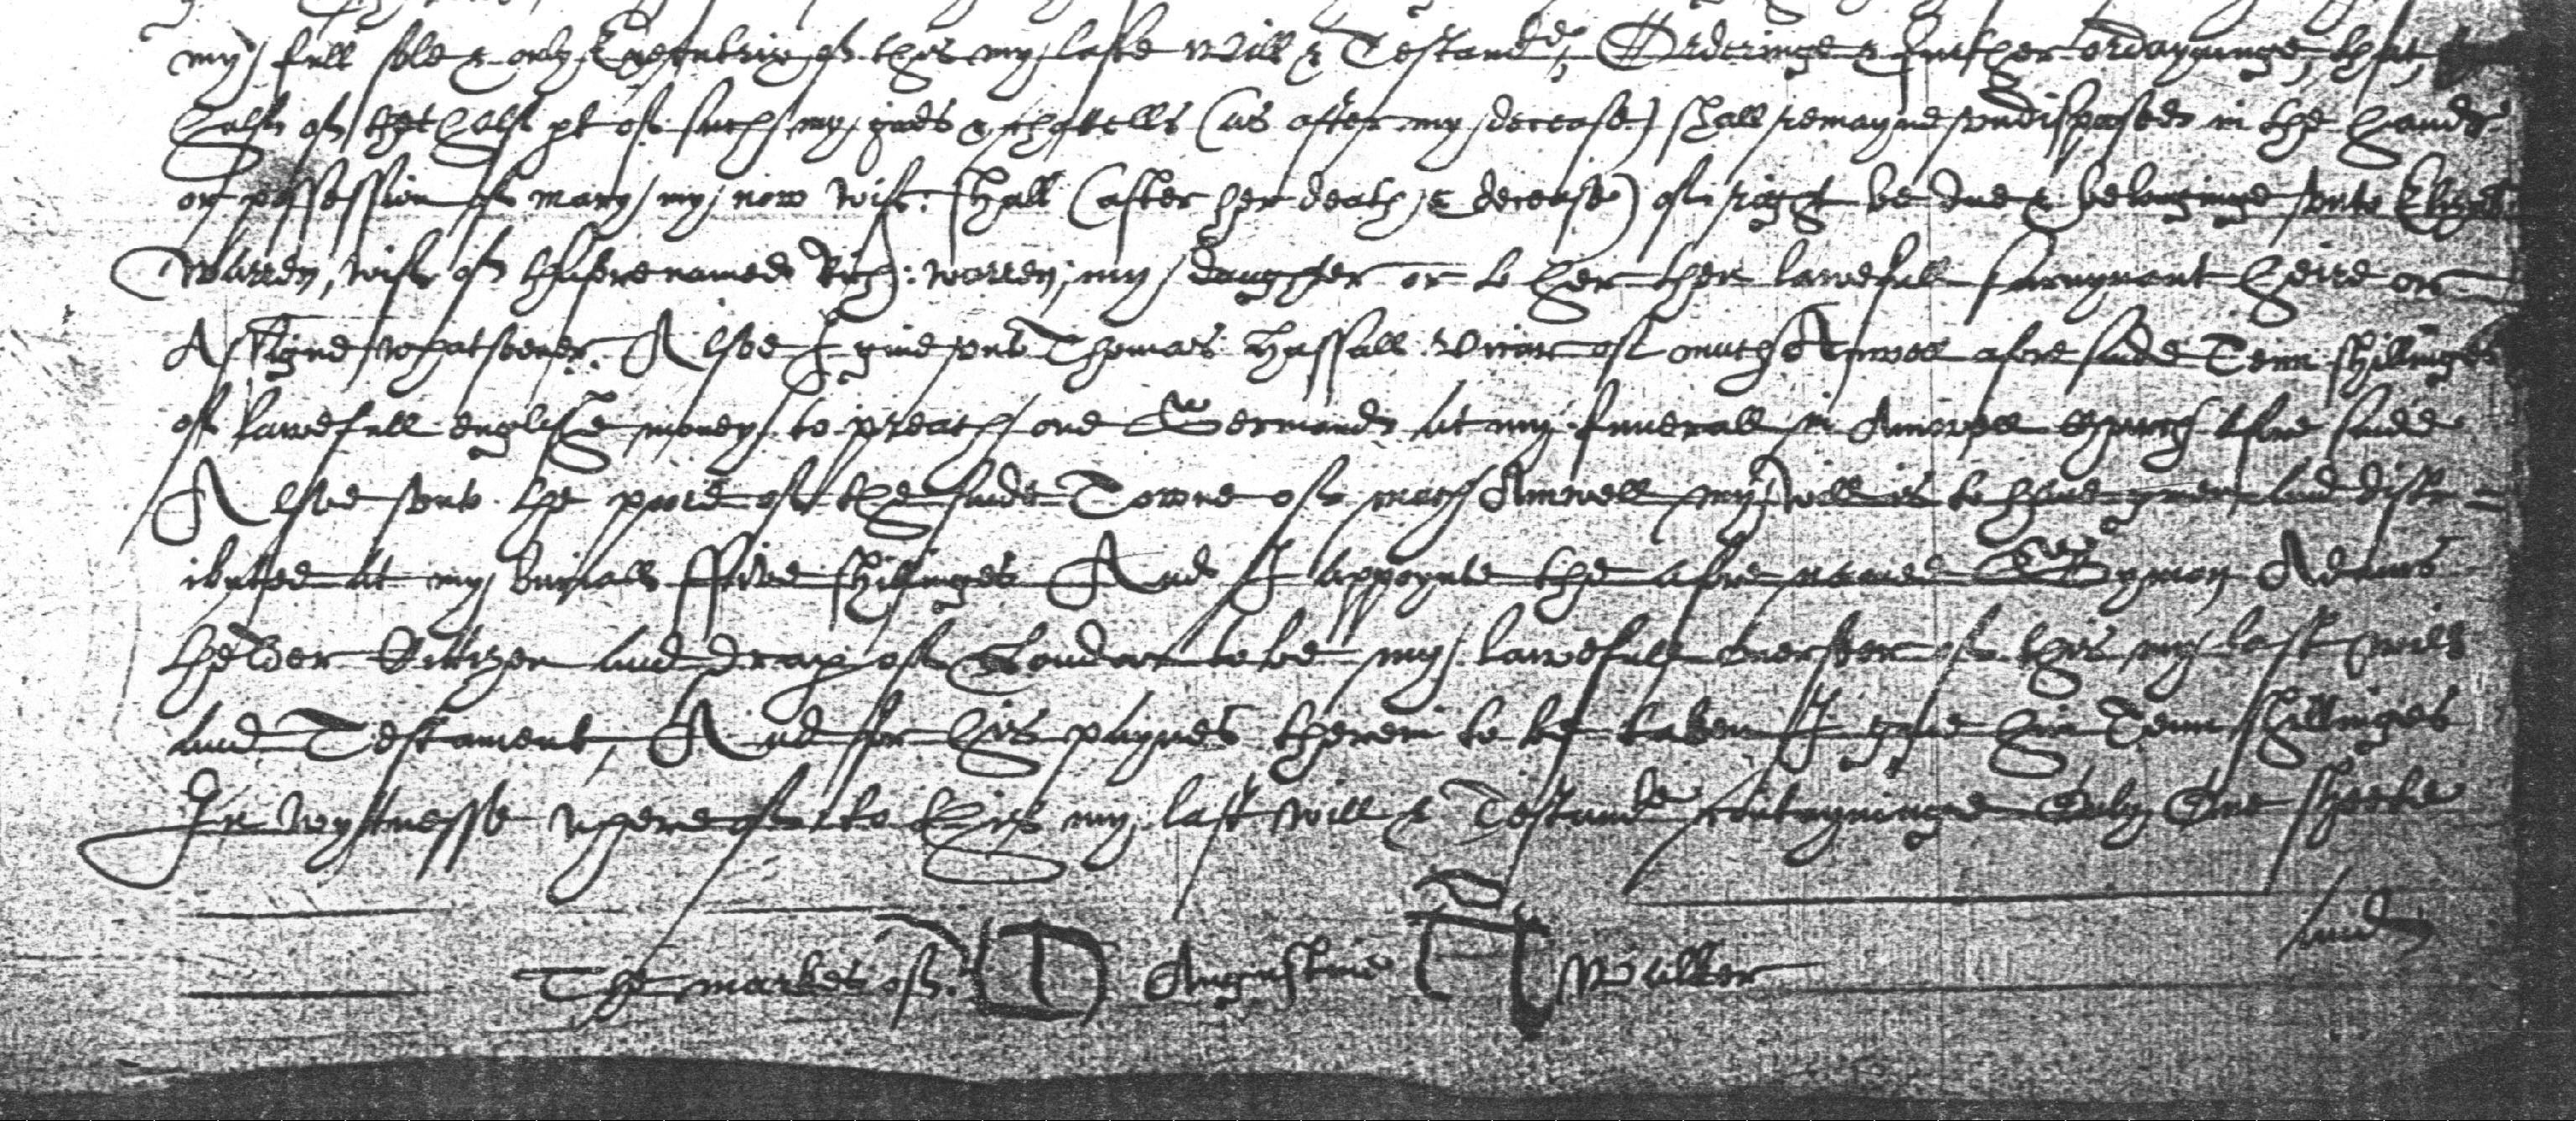 my full sole & only Executrix of this my laste Will & Testamte, Orderinge & further ordayninge, that,
halfe of thet halfe pt of such my goods & chattells (as after my decease) shall remayne undisposed in the hands
or possession of mary my now wife: shall (after her death, & decease) of right be due & belonginge unto Elizab:
Warren, wife of thafore named Rich: warren, my daughter or to her then lawefull survyvant heire or
Assigne whatsoever. Alsoe I give unto Thomas Hassall Vicar of much Amwell afore saide Tenn shillinges
of lawefull englishe money, to preach one Sermand at my funerall in Amwell Church afore saide
Alsoe unto the poore of the saide Towne of much Amwell my will is to have gyven and distr=
ibuted at my buriall ffive shillinges And I appoynte the afore named Symon Adams
thelder Cittizen and drap of London to be my lawefull overseer of this my last will
and Testament, And for his paynes therein to be taken I give him Tenn shillinges
In wytnesse whereof to this my last will & Testamte contayninge Only One sheete
and
The markes of: Augustine Walker